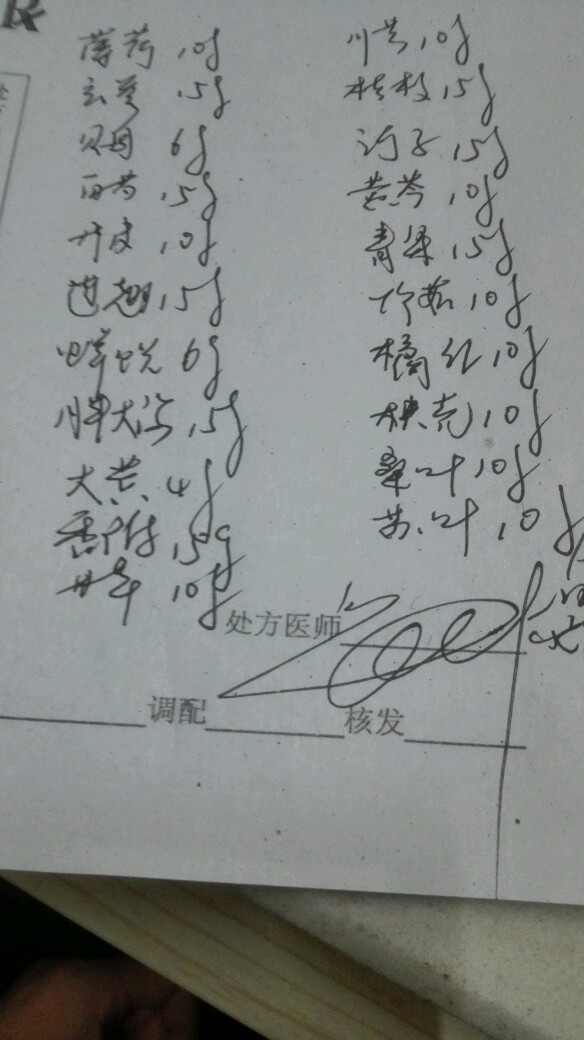 R
薄荷 10g 川芎 10g
玄参 15g 桔梗 15g
贝母 6g 诃子 15g
白芍 15g 黄芩 10g
丹皮 10g 青果 15g
连翘 15g 竹茹 10g
蝉蜕 6g 橘红 10g
胖大海 15g 枳壳 10g
大黄 4g 桑叶 10g
香附 15g 苏叶 10g
甘草 10g
处方医师
调配 核发